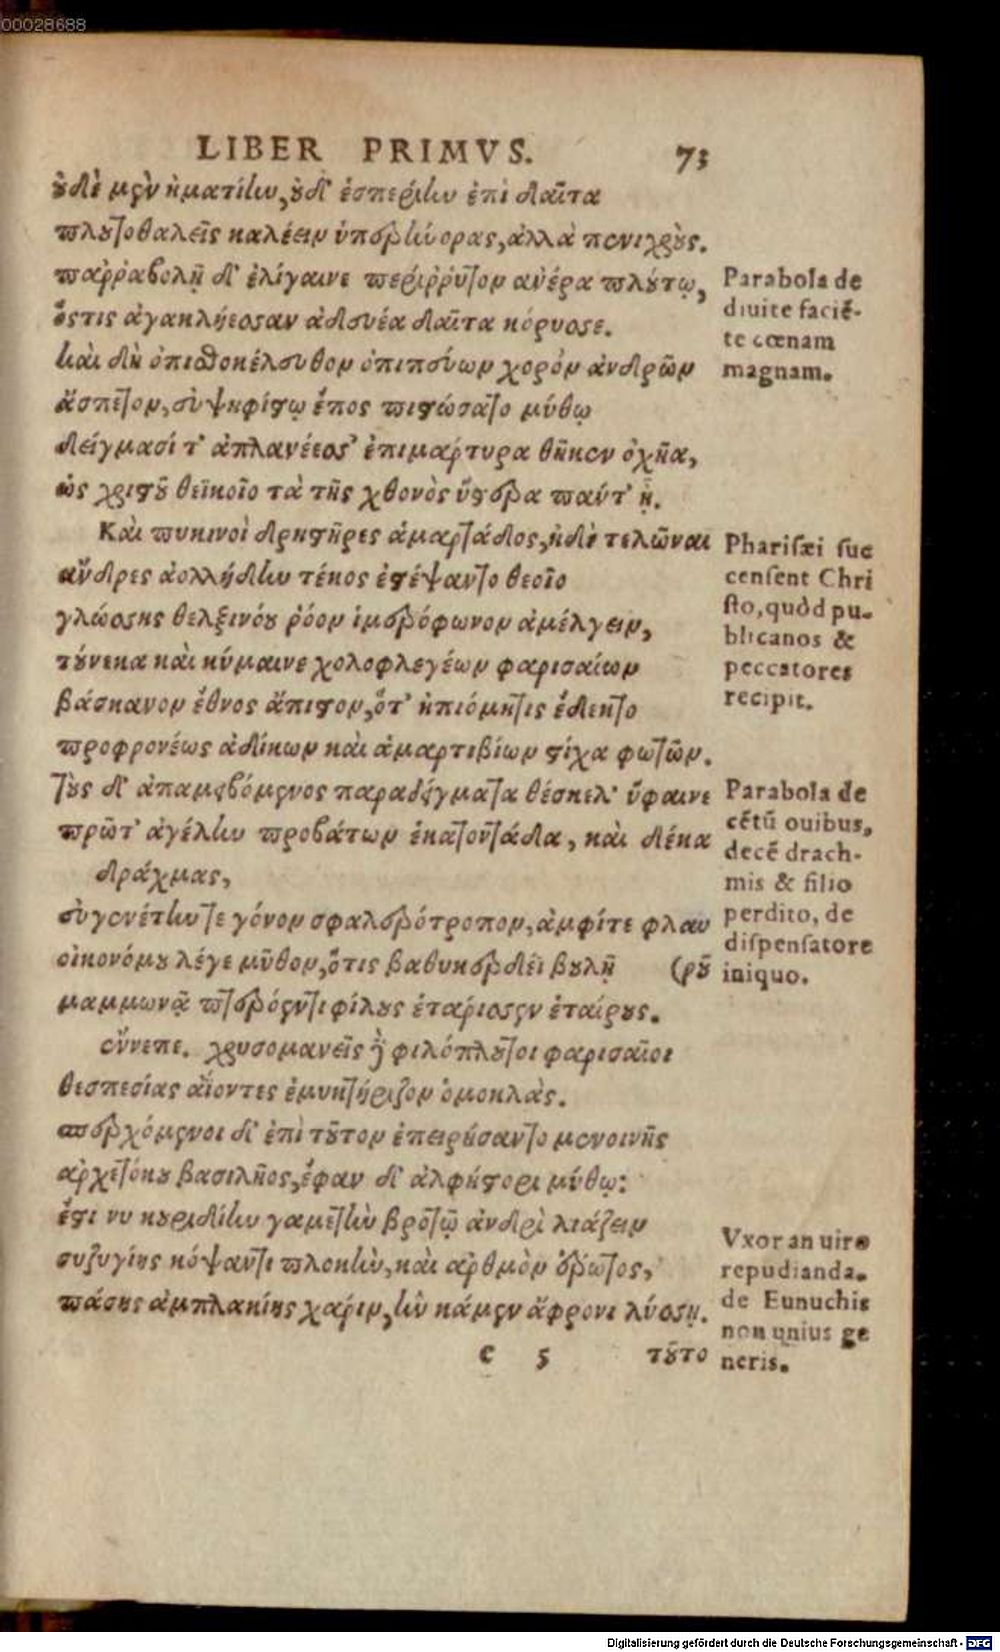 00028688
LIBER PRIMVS. 73
οὐδὲ μὲν ἠματίην, οὐδ' ἑσπερίην ἐπὶ δαῖτα
πλουτοθαλεῖς καλέειν ὑπερήνορας, ἀλλὰ πενιχρούς.
παῤῥαβολῇ δ' ἐλίγαινε περίῤῥυτον ἀνέρα πλούτῳ,
ὅστις ἀγακλήεσσαν ἀδευέα δαῖτα κόρυσσε.
καὶ δὴ ὀπισθοκέλευθον ὀπιπεύων χορὸν ἀνδρῶν
ἄσπετον, εὐψηφίστῳ ἔπος πιστώσατο μύθῳ
δείγμασί τ' ἀπλανέεσσ' ἐπιμάρτυρα θῆκεν ὀχῆα,
ὡς χριστοῦ θεϊκοῖο τὰ τῆς χθονὸς ὕστερα πάντ' ᾖ.
Καὶ πυκινοὶ δρηστῆρες ἁμαρτάδος, ἠδὲ τελῶναι
ἄνδρες ἀολλήδην τέκος ἐστέψαντο θεοῖο
γλώσσης θελξινόου ῥόον ἱμερόφωνον ἀμέλγειν,
τούνεκα καὶ κύμαινε χολοφλεγέων φαρισαίων
βάσκανον ἔθνος ἄπιστον, ὅτ' ἠπιόμητις ἔδεκτο
προφρονέως ἀδίκων καὶ ἁμαρτιβίων στίχα φωτῶν.
τοὺς δ' ἀπαμειβόμενος παραδείγματα θέσκελ' ὕφαινε
πρῶτ' ἀγέλην προβάτων ἑκατοντάδα, καὶ δέκα
δράχμας,
εὐγενέτην τε γόνον σφαλερότροπον, ἀμφίτε φλαυ
οἰκονόμου λέγε μῦθον, ὅτις βαθυκερδέϊ βουλῇ (ροῦ
μαμμωνᾷ πτερόεντι φίλους ἑταρίσσεν ἑταίρους.
ἔννεπε. χρυσομανεῖς δὲ φιλόπλουτοι φαρισαῖοι
θεσπεσίας ἀΐοντες ἐμυκτήριζον ὁμοκλὰς.
περχόμενοι δ' ἐπὶ τοῦτον ἐπειρήσαντο μενοινῆς
ἀρχετόκου βασιλῆος, ἔφαν δ' ἀλφήστορι μύθῳ:
ἔστι νυ κουριδίην γαμετὴν βροτῷ ἀνδρὶ λιάζειν
συζυγίης κόψαντι πλοκὴν, καὶ ἀρθμὸν ἔρωτος,
πάσης ἀμπλακίης χάριν, ἣν κάμεν ἄφρονι λύσσῃ.
e 5 τοῦτο
Parabola de
diuite faciē-
te cœnam
magnam.
Pharisæi suc
censent Chri
sto, quòd pu-
blicanos &
peccatores
recipit.
Parabola de
cētū ouibus,
decē drach-
mis & filio
perdito, de
dispensatore
iniquo.
Vxor an uiro
repudianda.
de Eunuchis
non unius ge
neris.
Digitalisierung gefördert durch die Deutsche Forschungsgemeinschaft - DFG